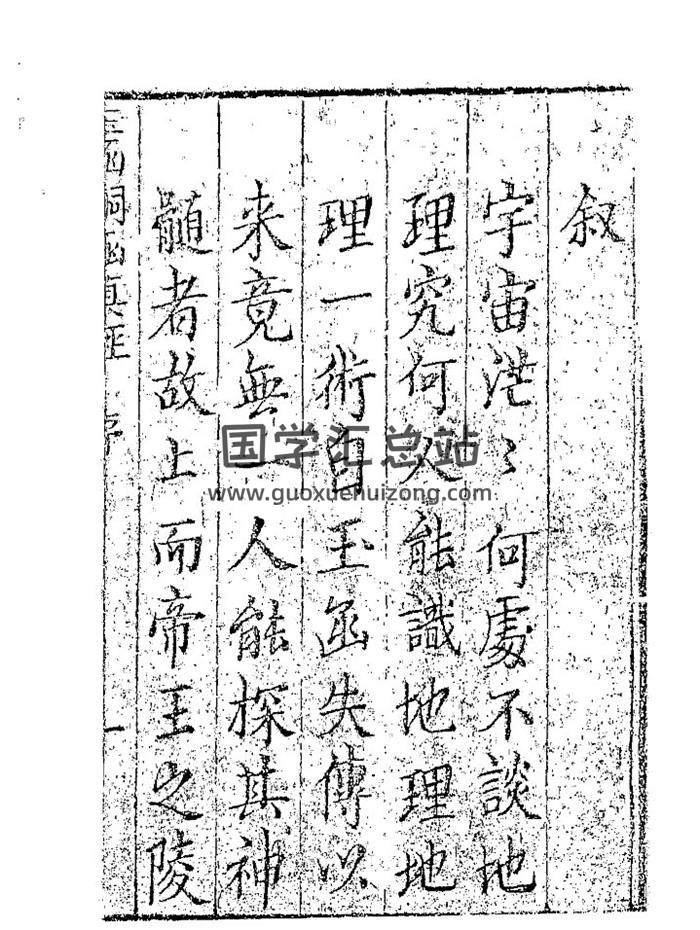 叙
宇宙茫〻何處不談地
理究何人能識地理地
理一術自玉函失傳以
来竟無一人能探其神
髓者故上而帝王之陵
玉函銅函真經 序 一
国学汇总站
www.guoxuehuizong.com